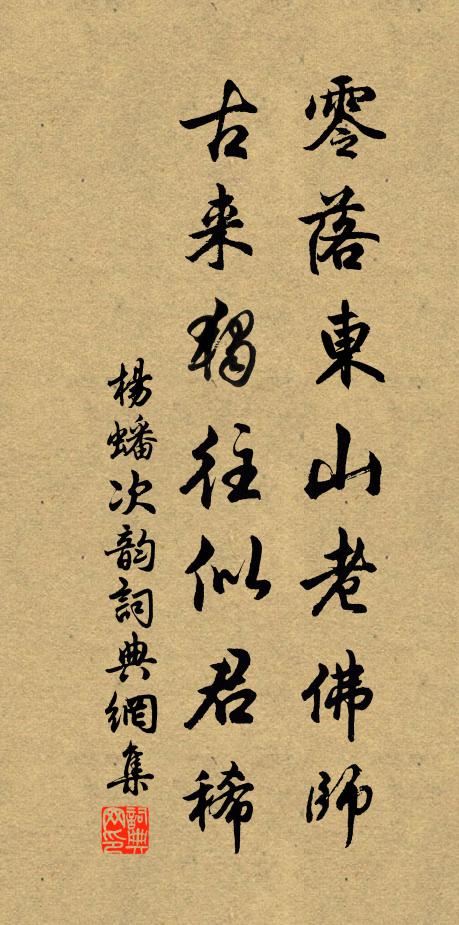 零落東山老佛師
古来獨往似君稀
楊蟠次韵詞典網集
詞典网印